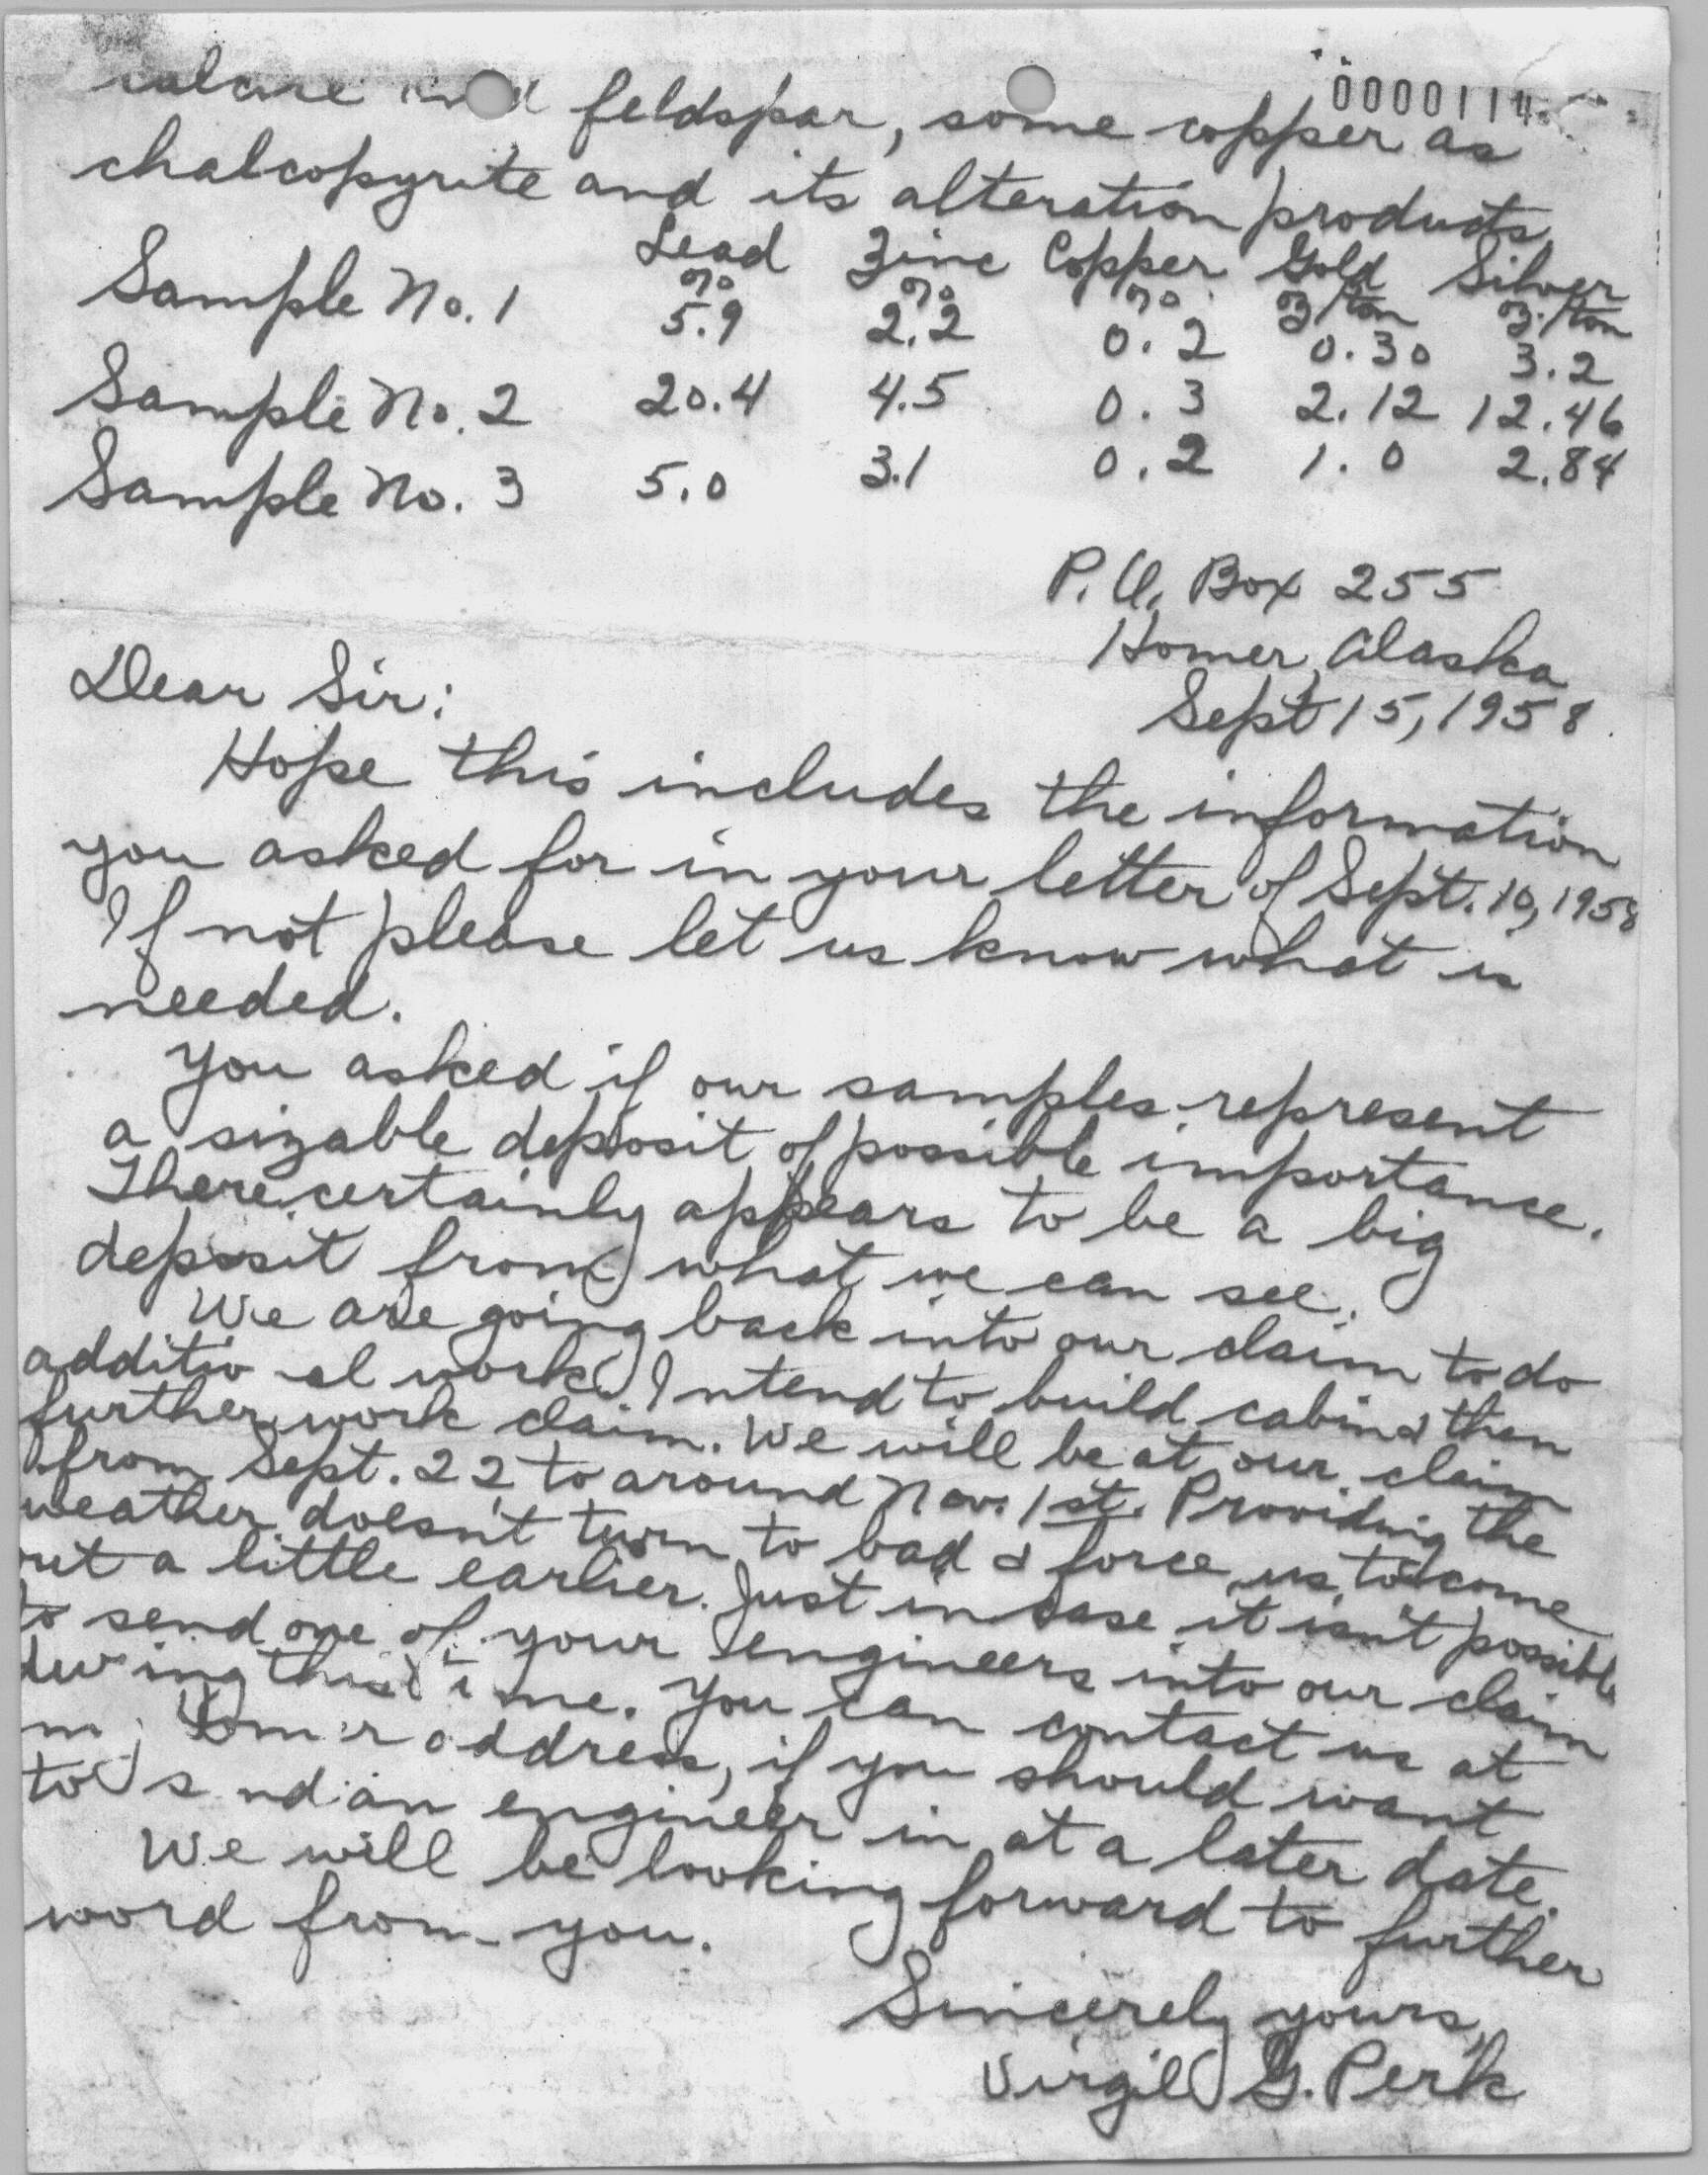 0000114
feldspar, some copper as
chalcopyrite and its alteration products.
Lead Zinc Copper Gold Silver
% % % oz/ton oz./ton
Sample No. 1 5.9 2.2 0.2 0.30 3.2
Sample No. 2 20.4 4.5 0.3 2.12 12.46
Sample No. 3 5.0 3.1 0.2 1.0 2.84
P.O. Box 255
Homer, Alaska
Sept 15, 1958.
Dear Sir:
Hope this includes the information
you asked for in your letter of Sept. 10, 1958
If not please let us know what is
needed.
You asked if our samples represent
a sizable deposit of possible importance.
There certainly appears to be a big
deposit from what we can see.
We are going back into our claim to do
additio al work. Intend to build cabin & then
further work claim. We will be at our claim
from Sept. 22 to around Nov. 1st. Providing the
weather doesn't turn to bad & force us to come
out a little earlier. Just in case it isn't possible
to send one of your engineers into our claim
during this time. You can contact us at
my Homer address, if you should want
to s nd an engineer in at a later date.
We will be looking forward to further
word from you.
Sincerely yours,
Virgil G. Perk